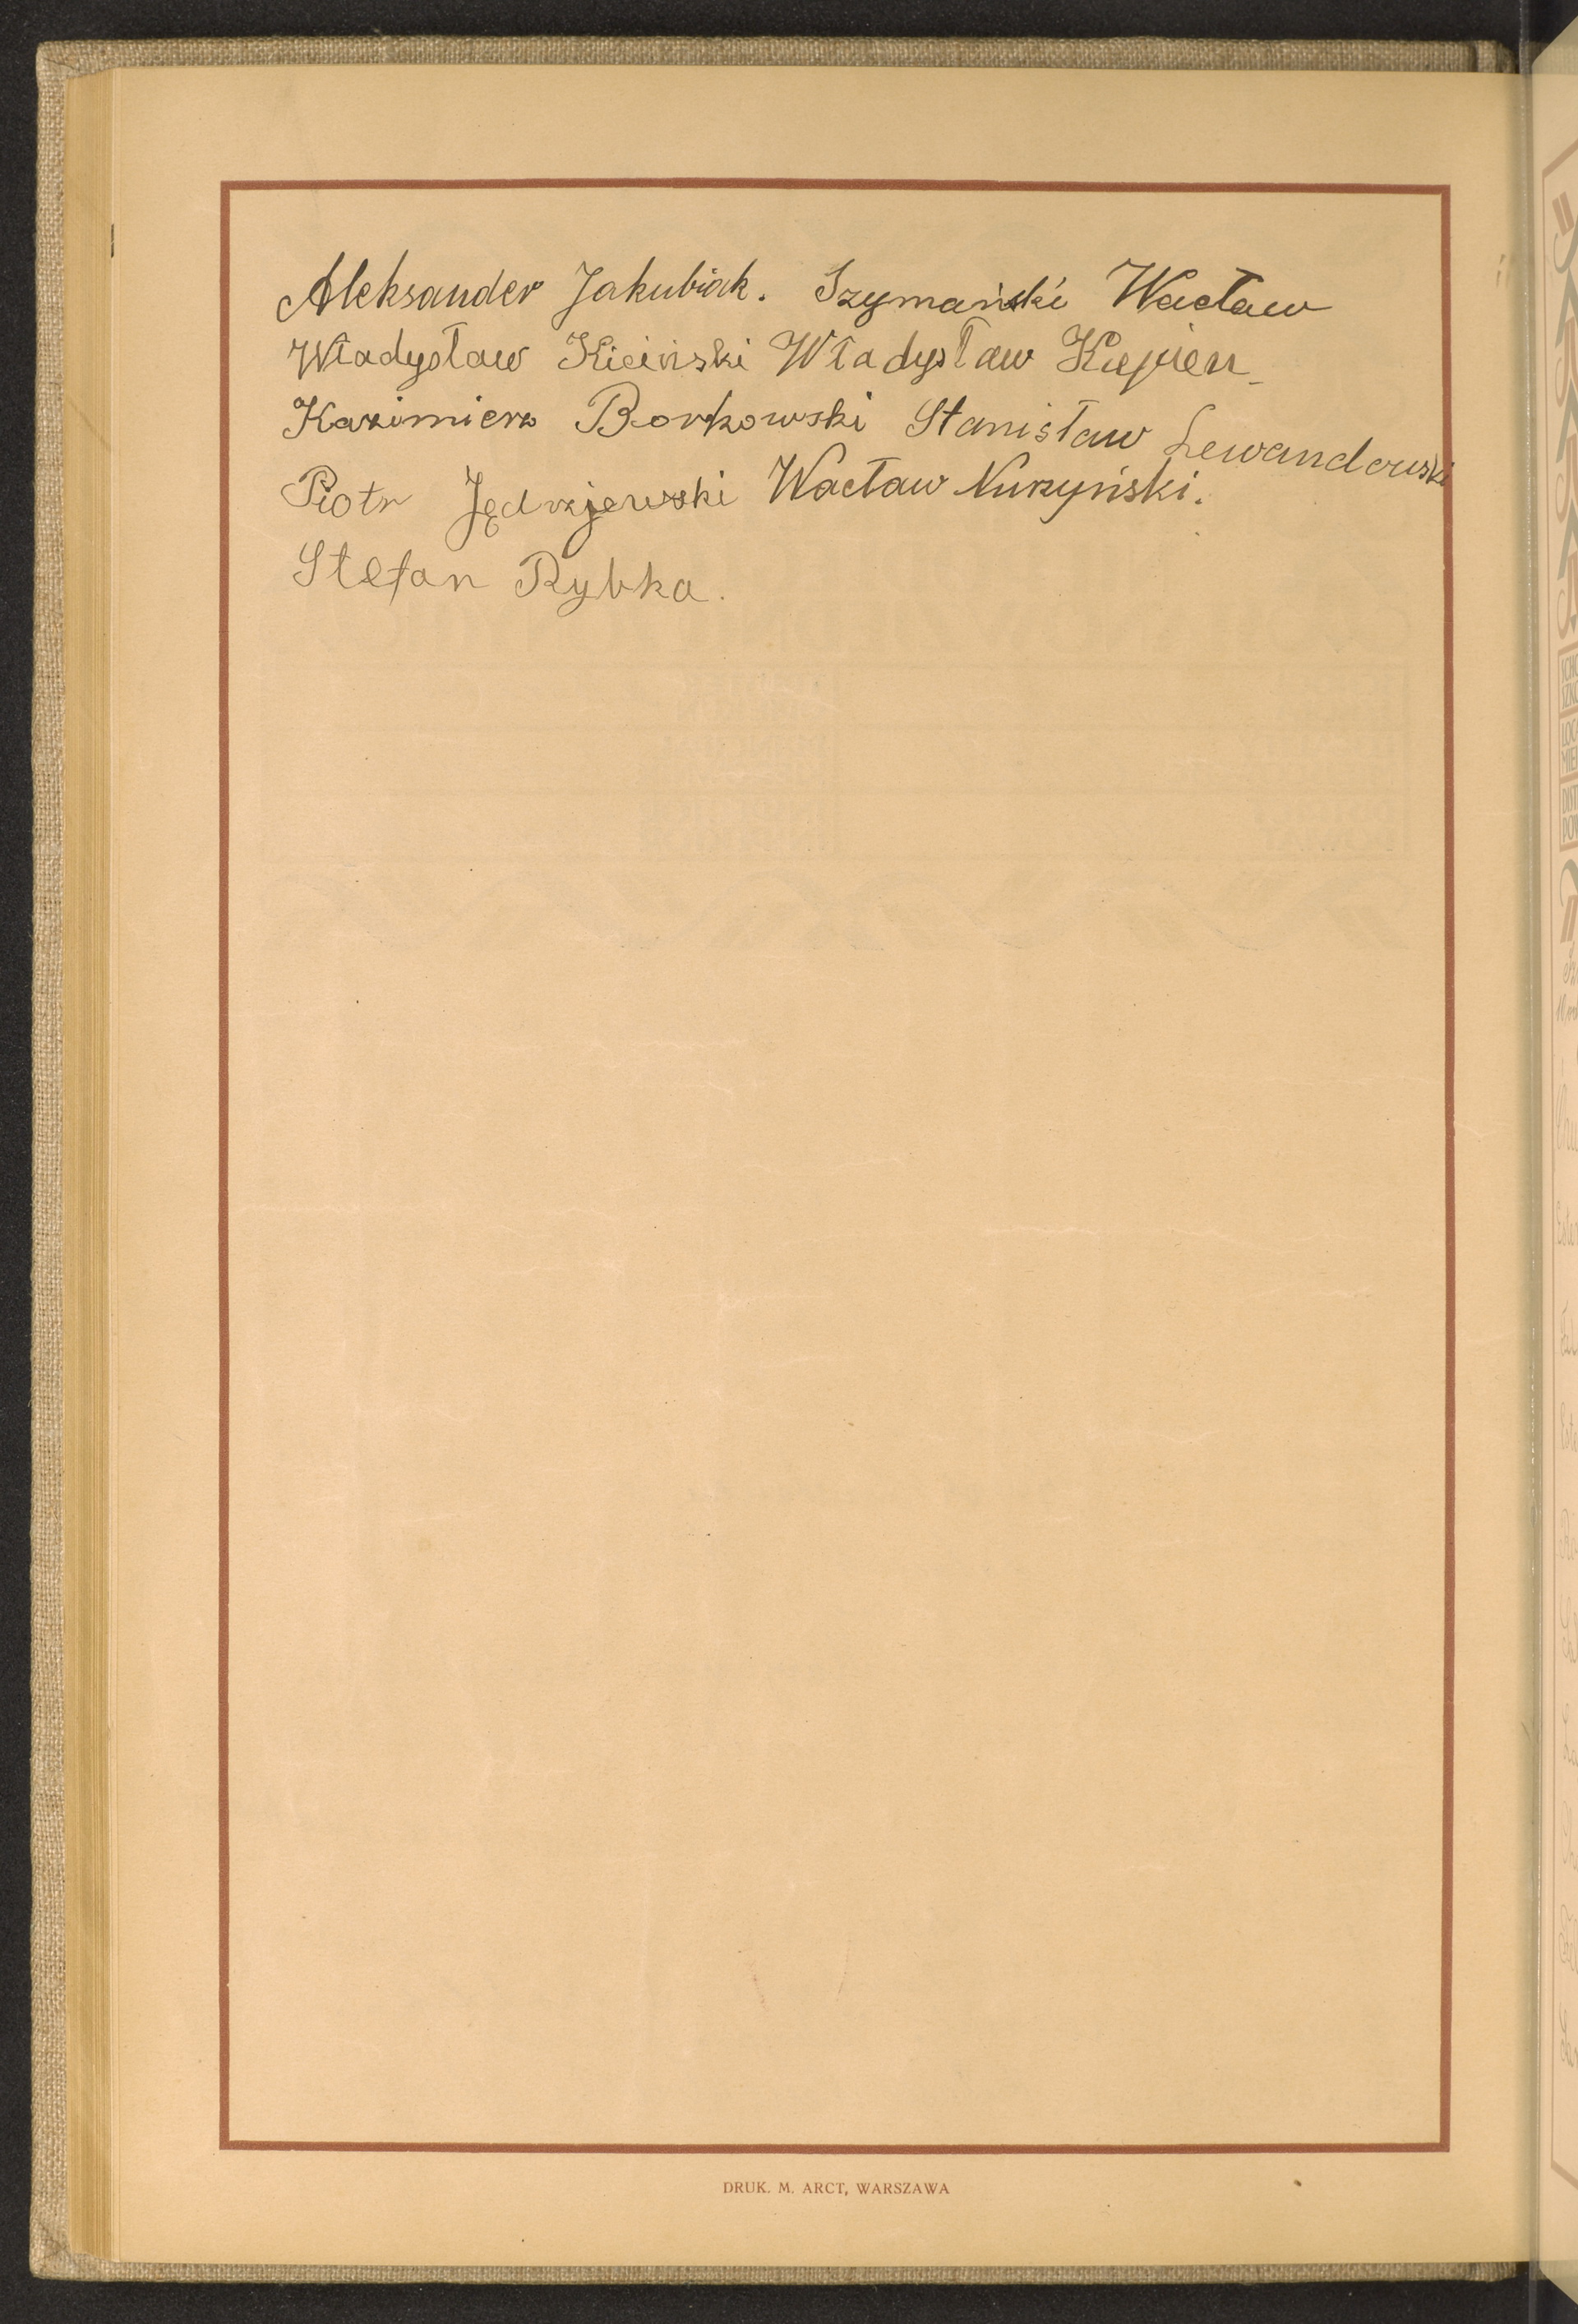 Aleksander Jakubiak. Szymański Wacław
Władysław Kiciński Władysław Kiepien
Kazimierz Borkowski Stanisław Lewandowski
Piotr Jędrzjewski Wacław Nurzyński.
Stefan Rybka.
DRUK. M. ARCT, WARSZAWA